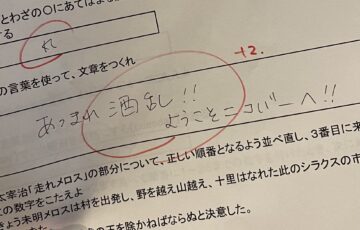 とわざの〇にあてはま
ける
れ
の言葉を使って、文章をつくれ
+2.
あつまれ 酒乱!!
ようこそニコバーへ!!
太宰治「走れメロス」の部分について、正しい順番となるよう並べ直し、3番目に来
の数字をこたえよ
きょう未明メロスは村を出発し、野を越え山越え、十里はなれた此のシラクスの市
の王を除かねばならぬと決意した。